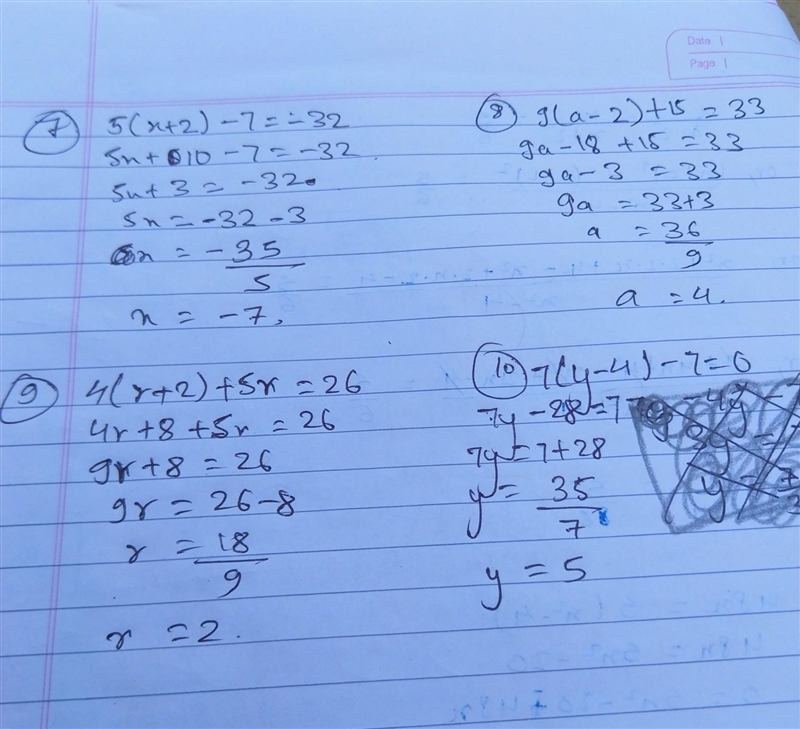 Date
Page
7 5(x+2) - 7 = -32
5x + 10 - 7 = -32
5x + 3 = -32
5x = -32 - 3
x = -35/5
x = -7,
8 9(a-2) + 15 = 33
9a - 18 + 15 = 33
9a - 3 = 33
9a = 33+3
a = 36/9
a = 4.
9 4(r+2) + 5r = 26
4r + 8 + 5r = 26
9r + 8 = 26
9r = 26-8
r = 18/9
r = 2.
10 7(y-4) - 7 = 0
7y - 28 = 7
7y = 7+28
y = 35/7
y = 5